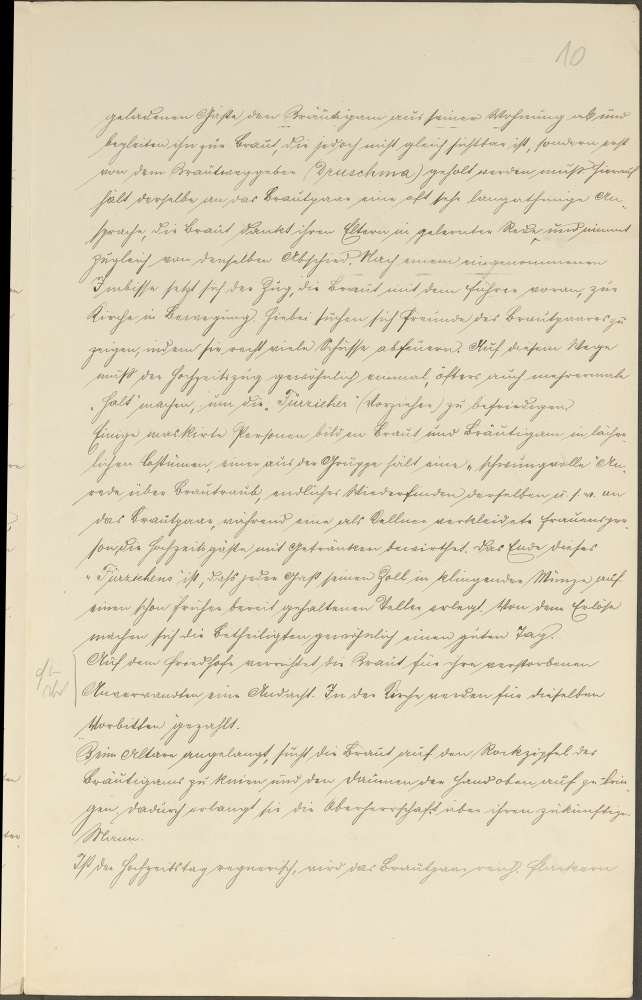 10
geladenen Gäste den Bräutigam aus seiner Wohnung ab, und
begleiten ihn zur Braut, die jedoch nicht gleich sichtbar ist, sondern erst
von dem Brautweggeber (Druschma) geholt werden muß. Hierauf
hält derselbe an das Brautpaar eine oft sehr langathmige An-
sprache, die Braut dankt ihren Eltern in gelernter Rede und nimmt
zugleich von denselben Abschied. Nach einem eingenommenen
Imbisse setzt sich der Zug, die Braut mit dem Führer voran, zur
Kirche in Bewegung. Hiebei suchen sich Freunde des Brautpaares zu
zeigen, indem sie recht viele Schüsse abfeuern. Auf diesem Wege
muß der Hochzeitszug gewöhnlich einmal, öfters auch mehreremale
"Halt" machen, um die "Fürzieher" (Vorzieher) zu befriedigen.
Einige maskirte Personen bilden Braut und Bräutigam in lächer-
lichen Costümen, einer aus der Gruppe hält eine "schwungvolle" An-
rede über Brautraub, endliches Wiederfinden derselben u. s. w. an
das Brautpaar, während eine als Kellner verkleidete Frauensper-
son, die Hochzeitsgäste mit Getränken bewirthet. Das Ende dieses
"Fürziehens" ist, daß jeder Gast seinen Zoll in klingender Münze auf
einen schon früher bereit gehaltenen Teller erlegt. Von dem Erlöse
machen sich die Betheiligten gewöhnlich einen guten Tag.
Auf dem Friedhofe verrichtet die Braut für ihre verstorbenen
Anverwandten eine Andacht. In der Kirche werden für dieselben
Vorbitten gezahlt.
Beim Altare angelangt, sucht die Braut auf den Rockzipfel des
Bräutigams zu knien und den Daumen der Hand oben auf zu brin-
gen, dadurch erlangt sie die Oberherrschaft über ihren zukünftigen
Mann.
Ist der Hochzeitstag regnerisch, wird das Brautpaar reich.